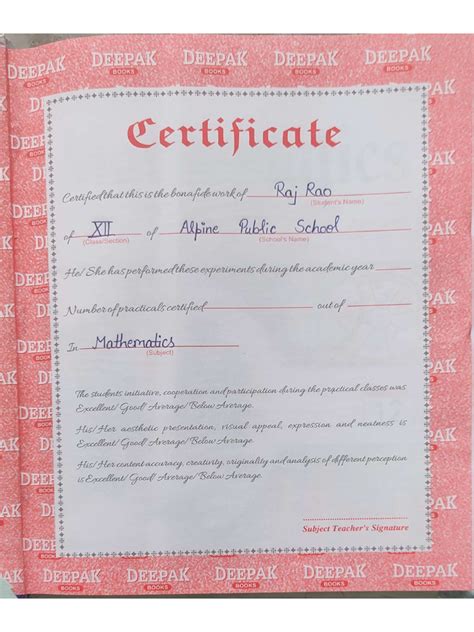 DEEPAK DEEPAK DEEPAK DEEPAK DEEPAK
BOOKS BOOKS BOOKS BOOKS BOOKS
Certificate
Certified that this is the bonafide work of Raj Rao
(Student's Name)
of XII of Alpine Public School
(Class/Section) (School's Name)
He/ She has performed these experiments during the academic year
Number of practicals certified out of
In Mathematics
(Subject)
The students initiative, cooperation and participation during the practical classes was
Excellent/ Good/ Average/ Below Average.
His/ Her aesthetic presentation, visual appeal, expression and neatness is
Excellent/ Good/ Average/ Below Average.
His/ Her content accuracy, creativity, originality and analysis of different perception
is Excellent/ Good/ Average/ Below Average.
Subject Teacher's Signature
DEEPAK DEEPAK DEEPAK DEEPAK DEEPAK
BOOKS BOOKS BOOKS BOOKS BOOKS